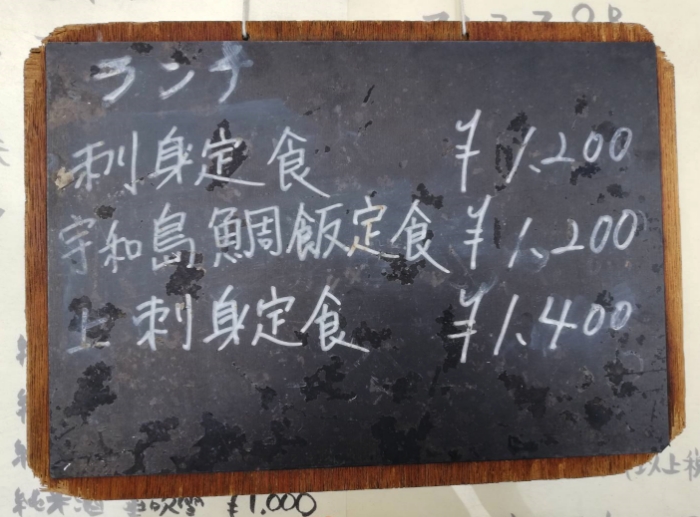 ランチ
刺身定食 ¥1,200
宇和島鯛飯定食 ¥1,200
上刺身定食 ¥1,400
純米酒 ¥1,000